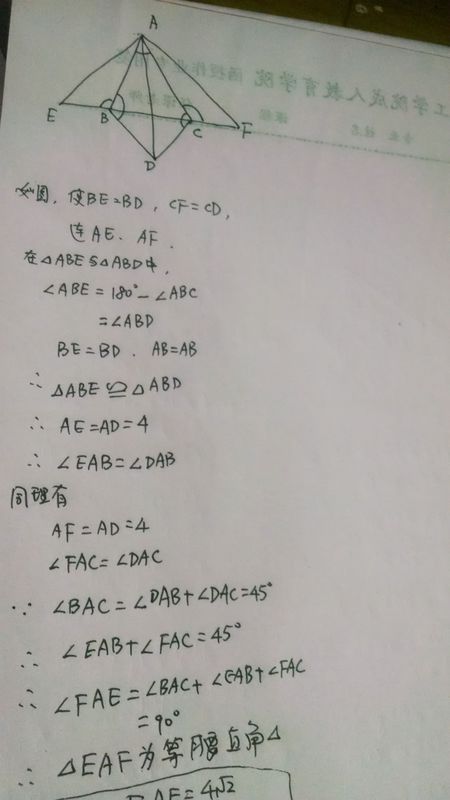 A
E
B
C
F
D
如图，使BE=BD，CF=CD，
连AE、AF．
在△ABE与△ABD中，
∠ABE=180°-∠ABC
=∠ABD
BE=BD．AB=AB
∴ △ABE≌△ABD
∴ AE=AD=4
∴ ∠EAB=∠DAB
同理有
AF=AD=4
∠FAC=∠DAC
∵ ∠BAC=∠DAB+∠DAC=45°
∴ ∠EAB+∠FAC=45°
∴ ∠FAE=∠BAC+∠EAB+∠FAC
=90°
∴ △EAF为等腰直角△
=4√2